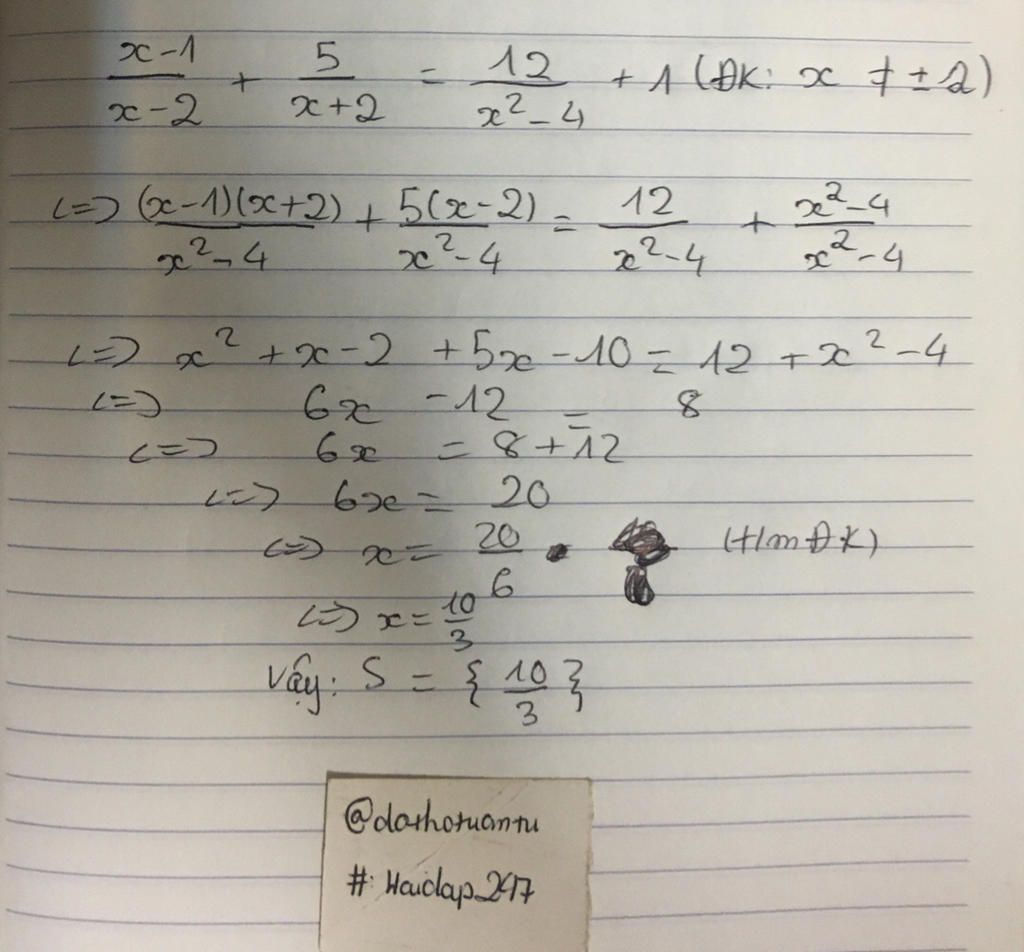 x-1/x-2 + 5/x+2 = 12/x²-4 + 1 (ĐK: x ≠ ±2)
<=> (x-1)(x+2)/x²-4 + 5(x-2)/x²-4 = 12/x²-4 + x²-4/x²-4
<=> x² + x - 2 + 5x - 10 = 12 + x² - 4
<=> 6x - 12 = 8
<=> 6x = 8 + 12
<=> 6x = 20
<=> x = 20/6 (t/m ĐK)
<=> x = 10/3
Vậy: S = { 10/3 }
@dathotuantu
#: Hoidap_247